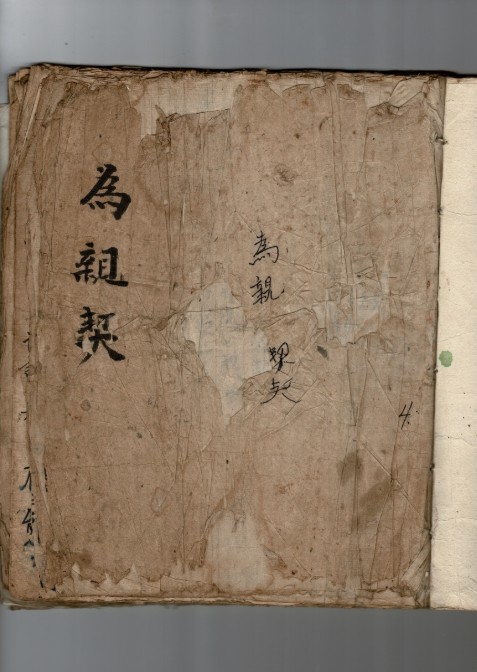 為親契
為親契
4